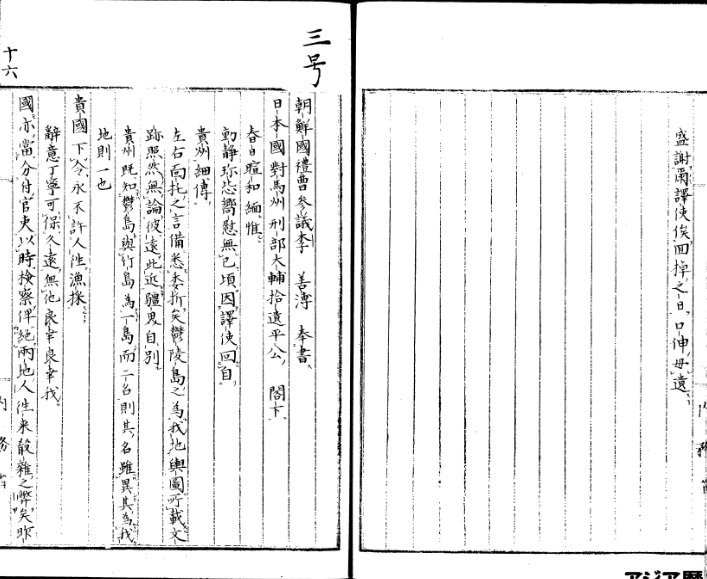 盛謝爾譯使俟回掉之日口伸毋遺
三号
朝鮮國禮曹參議李 善溥 奉書
日本國對馬州刑部大輔拾遺平公 閤下
春日暄和緬惟
動靜珎毖嚮慰無已頃因譯使回自
貴州細傳
左右面托之言備悉委折矣鬱陵島之為我地輿圖所載文
跡照然無論彼遠此近疆界自別
貴州既知鬱島與竹島為一島而二名則其名雖異其為我
地則一也
貴國下令永不許人徃漁採
辭意丁寧可保久遠無他良幸良幸我
國亦當分付官吏以時檢察俾絕兩地人徃来殽雜之弊矣昨
十六
内務省
アジア歴